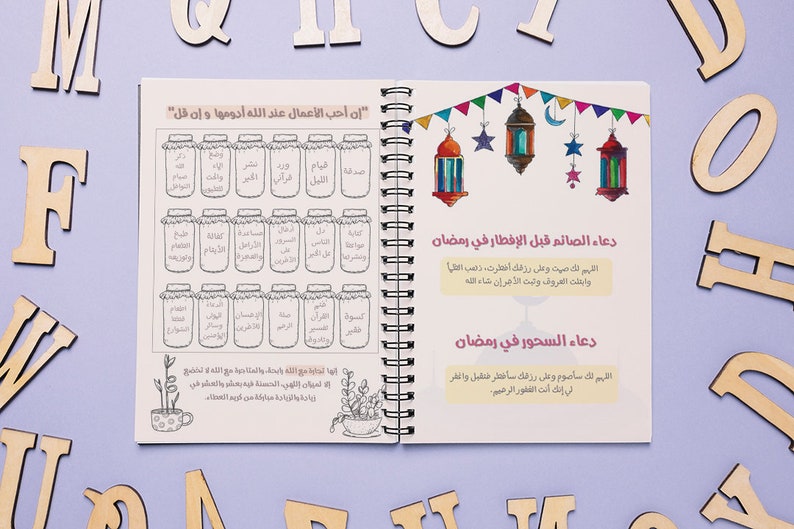 دعاء الصائم قبل الإفطار في رمضان
اللهم لك صمت وعلى رزقك أفطرت، ذهب الظمأ
وابتلت العروق وثبت الأجر إن شاء الله
دعاء السحور في رمضان
اللهم لك سأصوم وعلى رزقك سأفطر فتقبل واغفر
لي إنك أنت الغفور الرحيم.
"إن أحب الأعمال عند الله أدومها و إن قل"
صدقة
قيام
الليل
ورد
قرآني
نشر
الخير
وضع
الماء
والحب
للطيور
ذكر
الله
صيام
النوافل
كتابة
مواعظ
ونشرها
دل
الناس
على الخير
إدخال
السرور
على
الآخرين
مساعدة
الأرامل
والعجزة
كفالة
الأيتام
طبخ
الطعام
وتوزيعه
كسوة
فقير
القرآن
تفسير
وتلاوة
صلة
الرحم
الإحسان
للآخرين
الدعاء
وسائر
المؤمنين
اطعام
قطط
الشوارع
إنها تجارة مع الله رابحة، والمتاجرة مع الله لا تخضع
إلا لميزان إلهي، الحسنة فيه بعشر والعشر في
زيادة والزيادة مباركة من كريم العطاء.